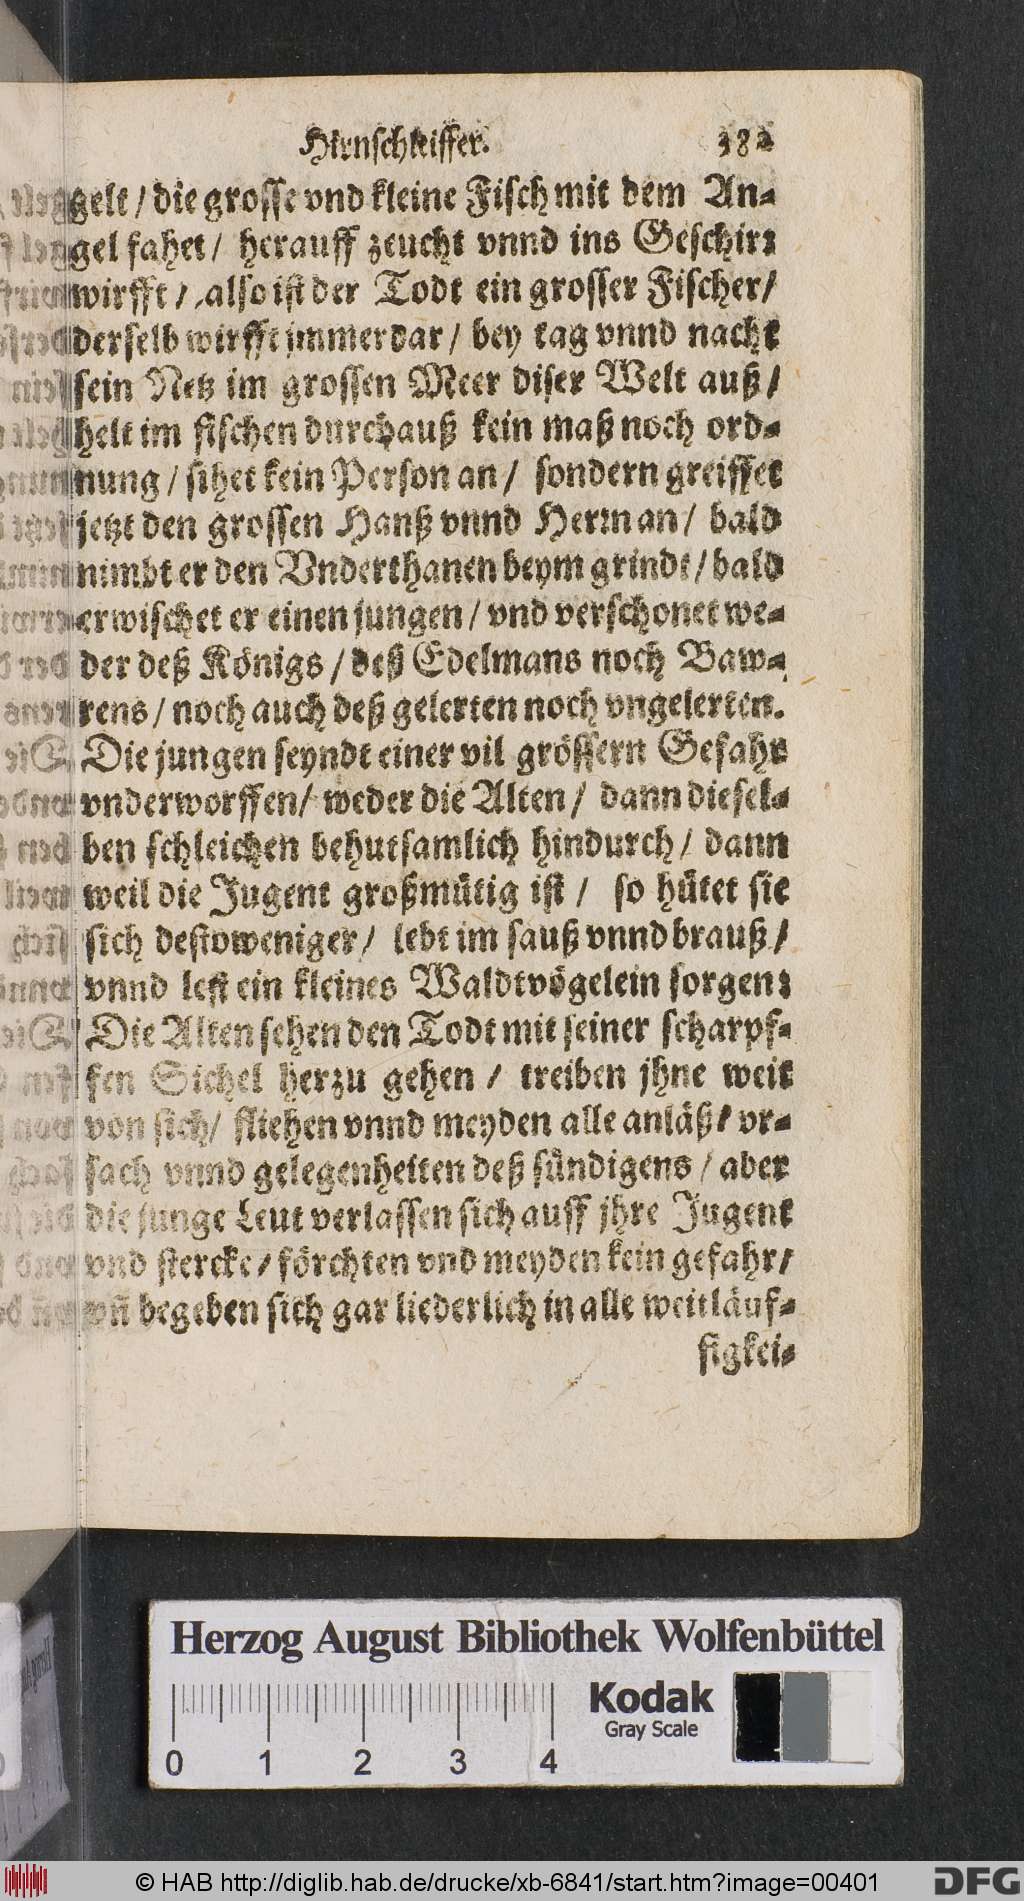 Hirnschleiffer. 382
gelt / die grosse vnd kleine Fisch mit dem An-
gel fahet / herauff zeucht vnnd ins Geschirr
wirfft / also ist der Todt ein grosser Fischer /
derselb wirfft jmmerdar / bey tag vnnd nacht
sein Netz im grossen Meer diser Welt auß /
helt im fischen durchauß kein maß noch ord-
nung / sihet kein Person an / sondern greiffet
jetzt den grossen Hanß vnnd Herrn an / bald
nimbt er den Vnderthanen beym grindt / bald
erwischet er einen jungen / vnd verschonet we-
der deß Königs / deß Edelmans noch Baw-
rens / noch auch deß gelerten noch vngelerten.
Die jungen seyndt einer vil grössern Gefahr
vnderworffen / weder die Alten / dann diesel-
ben schleichen behutsamlich hindurch / dann
weil die Jugent großmütig ist / so hütet sie
sich destoweniger / lebt im sauß vnnd brauß /
vnnd lest ein kleines Waldtvögelein sorgen:
Die Alten sehen den Todt mit seiner scharpf-
fen Sichel herzu gehen / treiben jhne weit
von sich / fliehen vnnd meyden alle anläß / vr-
sach vnnd gelegenheiten deß sündigens / aber
die junge Leut verlassen sich auff jhre Jugent
vnd stercke / förchten vnd meyden kein gefahr /
vn̄ begeben sich gar liederlich in alle weitläuf-
figkei-
Herzog August Bibliothek Wolfenbüttel
Kodak
Gray Scale
0 1 2 3 4
© HAB http://diglib.hab.de/drucke/xb-6841/start.htm?image=00401
DFG